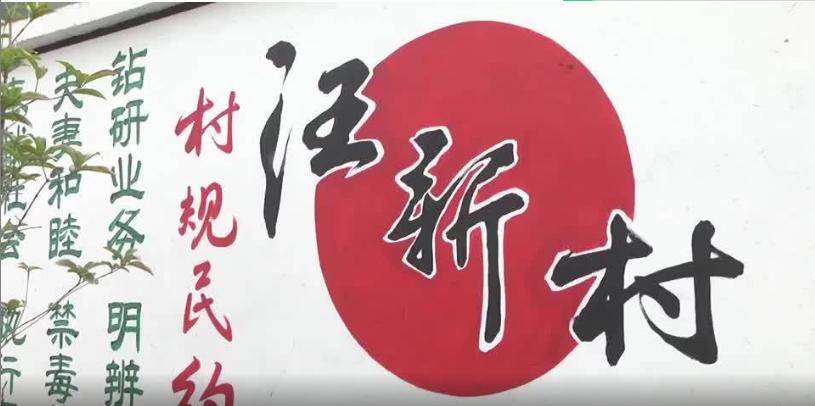 汪新村
村规民约
钻研业务 明辨
夫妻和睦 禁毒